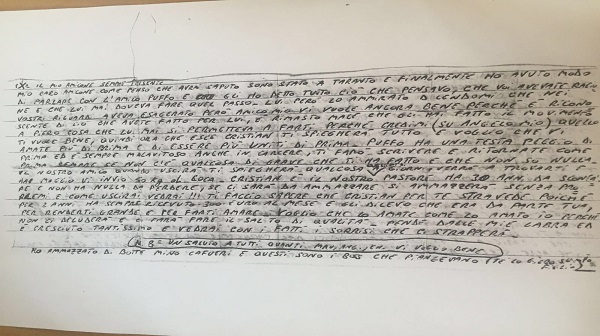 X IL MIO AMICONE SEMPRE PRESENTE
MIO CARO AMICONE COME PENSO CHE AVRA SAPUTO SONO STATO A TARANTO E FINALMENTE HO AVUTO MODO
DI PARLARE CON L'AMICO PUFFO E GLI HO DETTO TUTTO CIÒ CHE PENSAVO, CHE VOI AVEVATE RAGIO
NE E CHE LUI MAI DOVEVA FARE QUEL PASSO. LUI PERÒ LO AMMIRATO DICENDOMI CHE NEI
VOSTRI RIGUARDI AVEVA ESAGERATO PERÒ AMICO MIO VI VUOLE ANCORA BENE PERCHÉ E RICONO
SCENTE DI CIÒ CHE AVETE FATTO PER LUI, E RIMASTO MALE CHE GLI HAI FATTO IL MOVIMENTO
A PIERO COSA CHE LUI MAI SI PERMETTEVA A FARTI, PERCHÉ CREDIMI (SU ANGELO MIO) PERÒ LUI
TI VUOLE BENE, QUINDI ORA CHE ESCE CRISTIAN TI SPIEGHERÀ TUTTO E VOGLIO CHE VI
AMATE PIÙ DI PRIMA E DI ESSERE PIÙ UNITI DI PRIMA. PUFFO HA UNA TESTA PEGGIO DI
PRIMA ED E SEMPRE MALVITOSO ANCHE IN CARCERE, TI FANO SCENDERE E RITORNATE COME
PRIMA SEMPRE SE NON C'È QUALCOSA DI GRAVE CHE TI HA FATTO E CHE NON SO NULLA.
IL NOSTRO AMICO QUANDO USCIRÀ TI SPIEGHERÀ QUALCOSA
MAR MEGLIO VI HO AL COCA. CRISTIAN E IL NOSTRO PASTORE HA 30 ANNI DA SCONTA
RE E NON HA NULLA DA PERDERE, SE CI SARÀ DA AMMAZZARE SI AMMAZZERÀ SENZA PRO
BREMI E COME USCIRÀ VEDRAI!!! TI FACCIO SAPERE CHE CRISTIAN PER TE STRAVEDE POICHÉ
PER 2 ANNI, HA SEMPRE RICEVUTO 300 EURO AL MESE E GLI DICEVO CHE ERA DA PARTE TUA
PER RENDERTI GRANDE E PER FARTI AMARE. VOGLIO CHE LO AMATE COME LO AMATO IO PERCHÉ
NON CI DELUDERÀ E CI FARÀ FARE IL SALTO DI QUALITÀ
E CRESCIUTO TANTISSIMO E VEDRAI CON I FATTI I SORRISI CHE CI STRAPPERÀ.
N.B = UN SALUTO A TUTTI QUANTI VI VOGLIO BENE
HO AMMAZZATO DI BOTTE MINO CAFUERI E QUESTI SONO I BOSS CHE PIANGEVANO